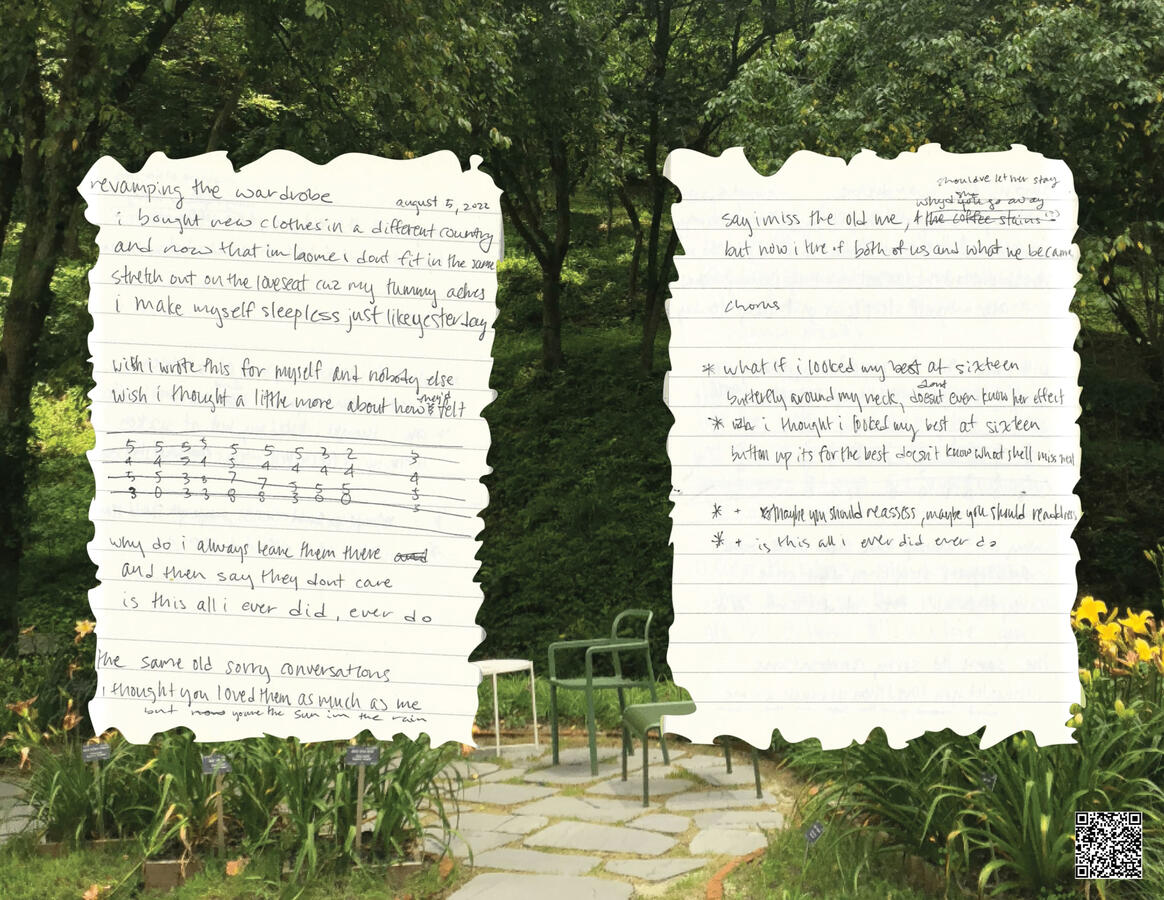 revamping the wardrobe
august 5, 2022
i bought new clothes in a different country
and now that im home i dont fit in the same
stretch out on the loveseat cuz my tummy aches
i make myself sleepless just like yesterday
wish i wrote this for myself and nobody else
they'd
wish i thought a little more about how felt
5 5 5 5 5 5 5 3 2 5
4 4 5 4 5 4 4 4 4 3
5 5 3 3 7 7 5 5 5 4
3 0 3 3 8 8 3 0 0 5
5
why do i always leave them there and
and then say they dont care
is this all i ever did, ever do
the same old sorry conversations
i thought you loved them as much as me
but now youre the sun im the rain
shouldve let her stay
she
why'd you go away
say i miss the old me, & the coffee stains (?)
but now i tire of both of us and what we became
chorus
* what if i looked my best at sixteen
dont
butterfly around my neck, doesnt even know her effect
* i thought i looked my best at sixteen
button up its for the best doesn't know what shell miss next
* + maybe you should reassess, maybe you should readdress
* + is this all i ever did ever do